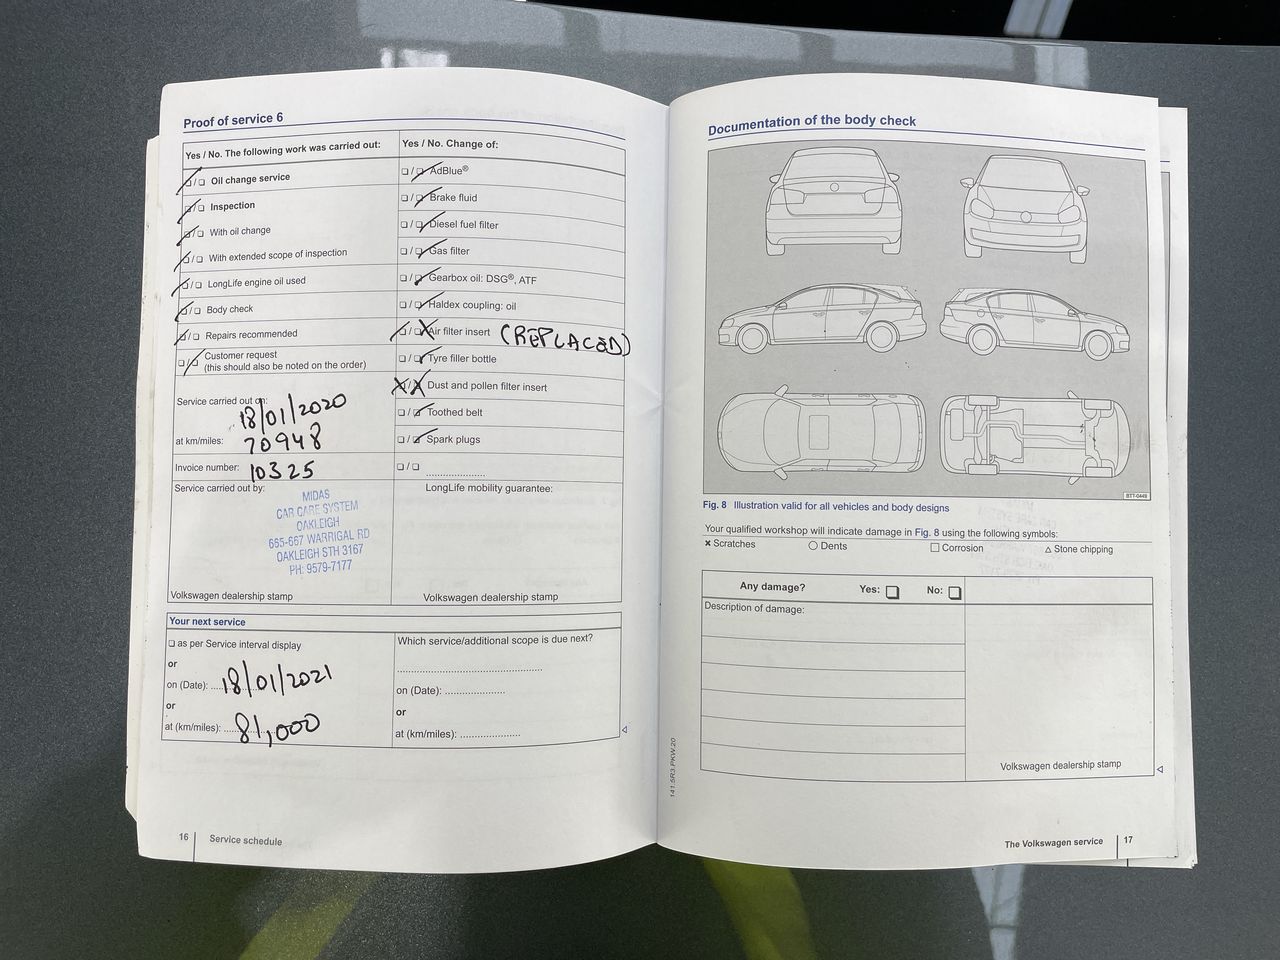 Proof of service 6
Yes / No. The following work was carried out:
❏/❏ Oil change service
❏/❏ Inspection
❏/❏ With oil change
❏/❏ With extended scope of inspection
❏/❏ LongLife engine oil used
❏/❏ Body check
❏/❏ Repairs recommended
❏/❏ Customer request
(this should also be noted on the order)
Service carried out on:
18/01/2020
at km/miles: 70948
Invoice number: 10325
Service carried out by:
MIDAS
CAR CARE SYSTEM
OAKLEIGH
665-667 WARRIGAL RD
OAKLEIGH STH 3167
PH: 9579-7177
Volkswagen dealership stamp
Yes / No. Change of:
❏/❏ AdBlue®
❏/❏ Brake fluid
❏/❏ Diesel fuel filter
❏/❏ Gas filter
❏/❏ Gearbox oil: DSG®, ATF
❏/❏ Haldex coupling: oil
❏/❏ Air filter insert (REPLACED)
❏/❏ Tyre filler bottle
❏/❏ Dust and pollen filter insert
❏/❏ Toothed belt
❏/❏ Spark plugs
❏/❏ ......................
LongLife mobility guarantee:
Volkswagen dealership stamp
Your next service
❏ as per Service interval display
or
on (Date): ....18/01/2021
or
at (km/miles): ....81,000
Which service/additional scope is due next?
......................................................
on (Date): ......................
or
at (km/miles): ......................
16 Service schedule
Documentation of the body check
BTT-0449
Fig. 8 Illustration valid for all vehicles and body designs
Your qualified workshop will indicate damage in Fig. 8 using the following symbols:
× Scratches ○ Dents □ Corrosion △ Stone chipping
Any damage? Yes: ❏ No: ❏
Description of damage:
Volkswagen dealership stamp
141.5R3.PKW.20
The Volkswagen service 17